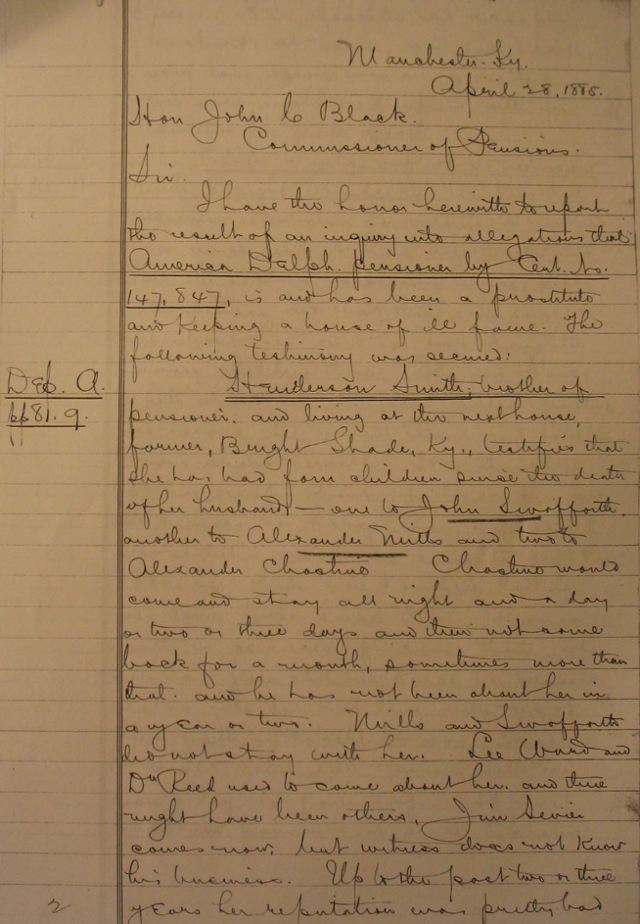 Manchester. Ky.
April 28, 1885.
Hon John C Black.
Commissioner of Pensions.
Sir.
I have the honor herewith to report
the result of an inquiry into allegations that
American Delph. pensioner by Cent. No.
147,847, is and has been a prostitute
and keeping a house of ill fame. The
following testimony was secured:
Dep. A.
pp 8. 9.
Henderson Smith, brother of
pensioner. and living at the next house,
farmer, Bright Shade, Ky., testifies that
she has had four children since the death
of her husband, — one to John Swofforth.
another to Alexander Mills and two to
Alexander Chastine Chastine would
come and stay all night and a day
or two or three days and then not come
back for a month, sometimes more than
that. and he has not been about her in
a year or two. Mills and Swofforth
did not stay with her. Lee Ward and
Dr Reed used to come about her. and there
might have been others, Jim Sevier
comes now, but witness does not know
his business. Up to the past two or three
years her reputation was pretty bad
2